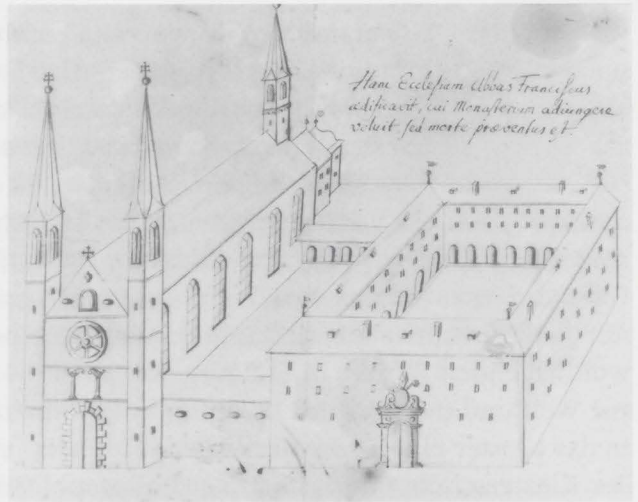 Hanc Ecclesiam Abbas Franciscus
ædificavit, cui Monasterium adiungere
voluit sed morte præventus est